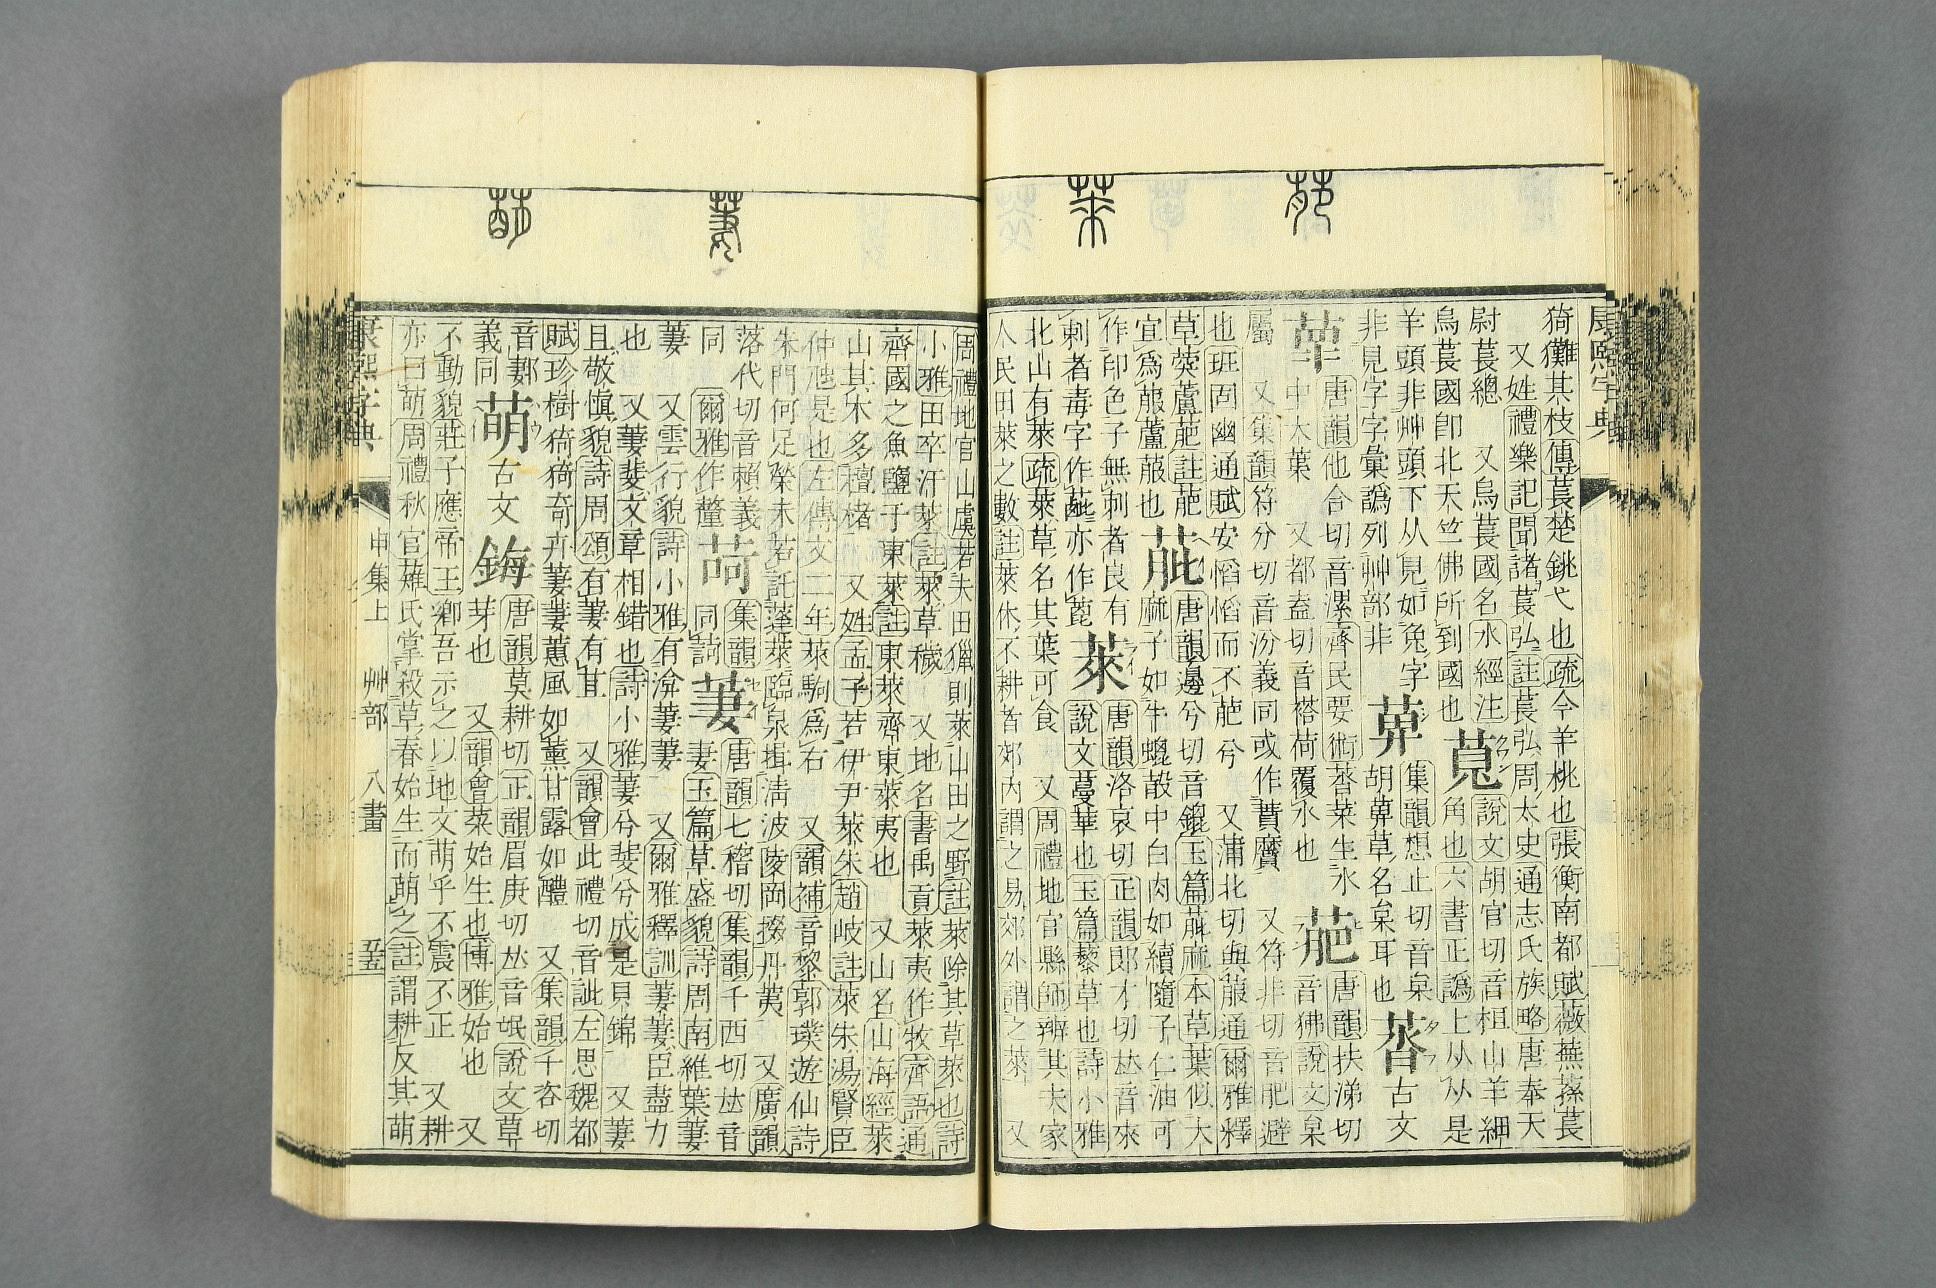 猗儺其枝傳萇楚銚弋也疏今羊桃也張衡南都賦薇蕪蓀萇
又姓禮樂記聞諸萇弘註萇弘周太史通志氏族略唐奉天
尉萇總 又烏萇國名水經注 萈 說文胡官切音桓山羊細
烏萇國卽北天竺佛所到國也 角也六書正譌上从从是
羊頭非艸頭下从見如兔字 集韻想止切音枲
非見字字彙譌列艸部非 胡枲草名枲耳也 荅 古文
唐韻他合切音漯齊民要術荅菜生水
中大葉 又都盍切音𦈢荷覆水也 萉 唐韻扶涕切
音狒說文枲
屬 又集韻符分切音汾義同或作蕡黂 又符非切音肥避
也班固幽通賦安慆慆而不萉兮 又蒲北切與菔通爾雅釋
草葖蘆萉註萉 唐韻邊兮切音錕玉篇萞麻本草葉似大
宜爲菔蘆菔也 萞 麻子如牛蜱殼中白肉如續隨子仁油可
作印色子無刺者良有 萊 唐韻洛哀切正韻郎才切𠀤音來
刺者毒字作䔡亦作蓖 說文蔓華也玉篇藜草也詩小雅
北山有萊疏萊草名其葉可食 又周禮地官縣師辨其夫家
人民田萊之數註萊休不耕者郊內謂之易郊外謂之萊 又
周禮地官山虞若大田獵則萊山田之野註萊除其草萊也詩
小雅田卒汙萊註萊草穢 又地名書禹貢萊夷作牧齊語通
齊國之魚鹽于東萊註東萊齊東萊夷也 又山名山海經萊
山其木多檀楮 又姓孟子若伊尹萊朱趙岐註萊朱湯賢臣
仲虺是也左傳文二年萊駒爲右 又韻補音黎郭璞遊仙詩
朱門何足榮未若託蓬萊臨泉揖淸波陵岡掇丹荑 又廣韻
落代切音賴義 集韻 萋 唐韻七稽切集韻千西切𠀤音
同 爾雅作釐 同訶 妻玉篇草盛貌詩周南維葉萋
萋 又雲行貌詩小雅有渰萋萋 又爾雅釋訓萋萋臣盡力
也 又萋斐文章相錯也詩小雅萋兮斐兮成是貝錦 又萋
且敬愼貌詩周頌有萋有苴 又韻會此禮切音訿左思魏都
賦珍樹猗猗奇卉萋萋蕙風如薰甘露如醴 又集韻千咨切
音郪 萌 古文 唐韻莫耕切正韻眉庚切𠀤音氓說文草
義同 芽也 又韻會菜始生也博雅始也 又
不動貌莊子應帝王鄕吾示之以地文萌乎不震不正 又耕
亦曰萌周禮秋官薙氏掌殺草春始生而萌之註謂耕反其萌
康熙字典 申集上 艸部 八畫